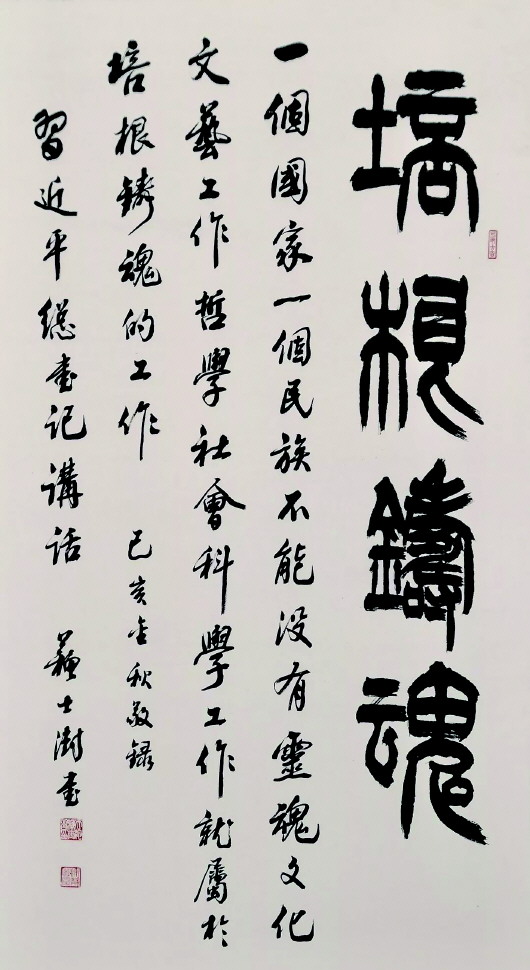 培根鑄魂
一個國家一個民族不能没有靈魂文化
文藝工作哲學社會科學工作就屬於
培根鑄魂的工作 己亥金秋敬録
習近平總書記講話 蘇士澍書